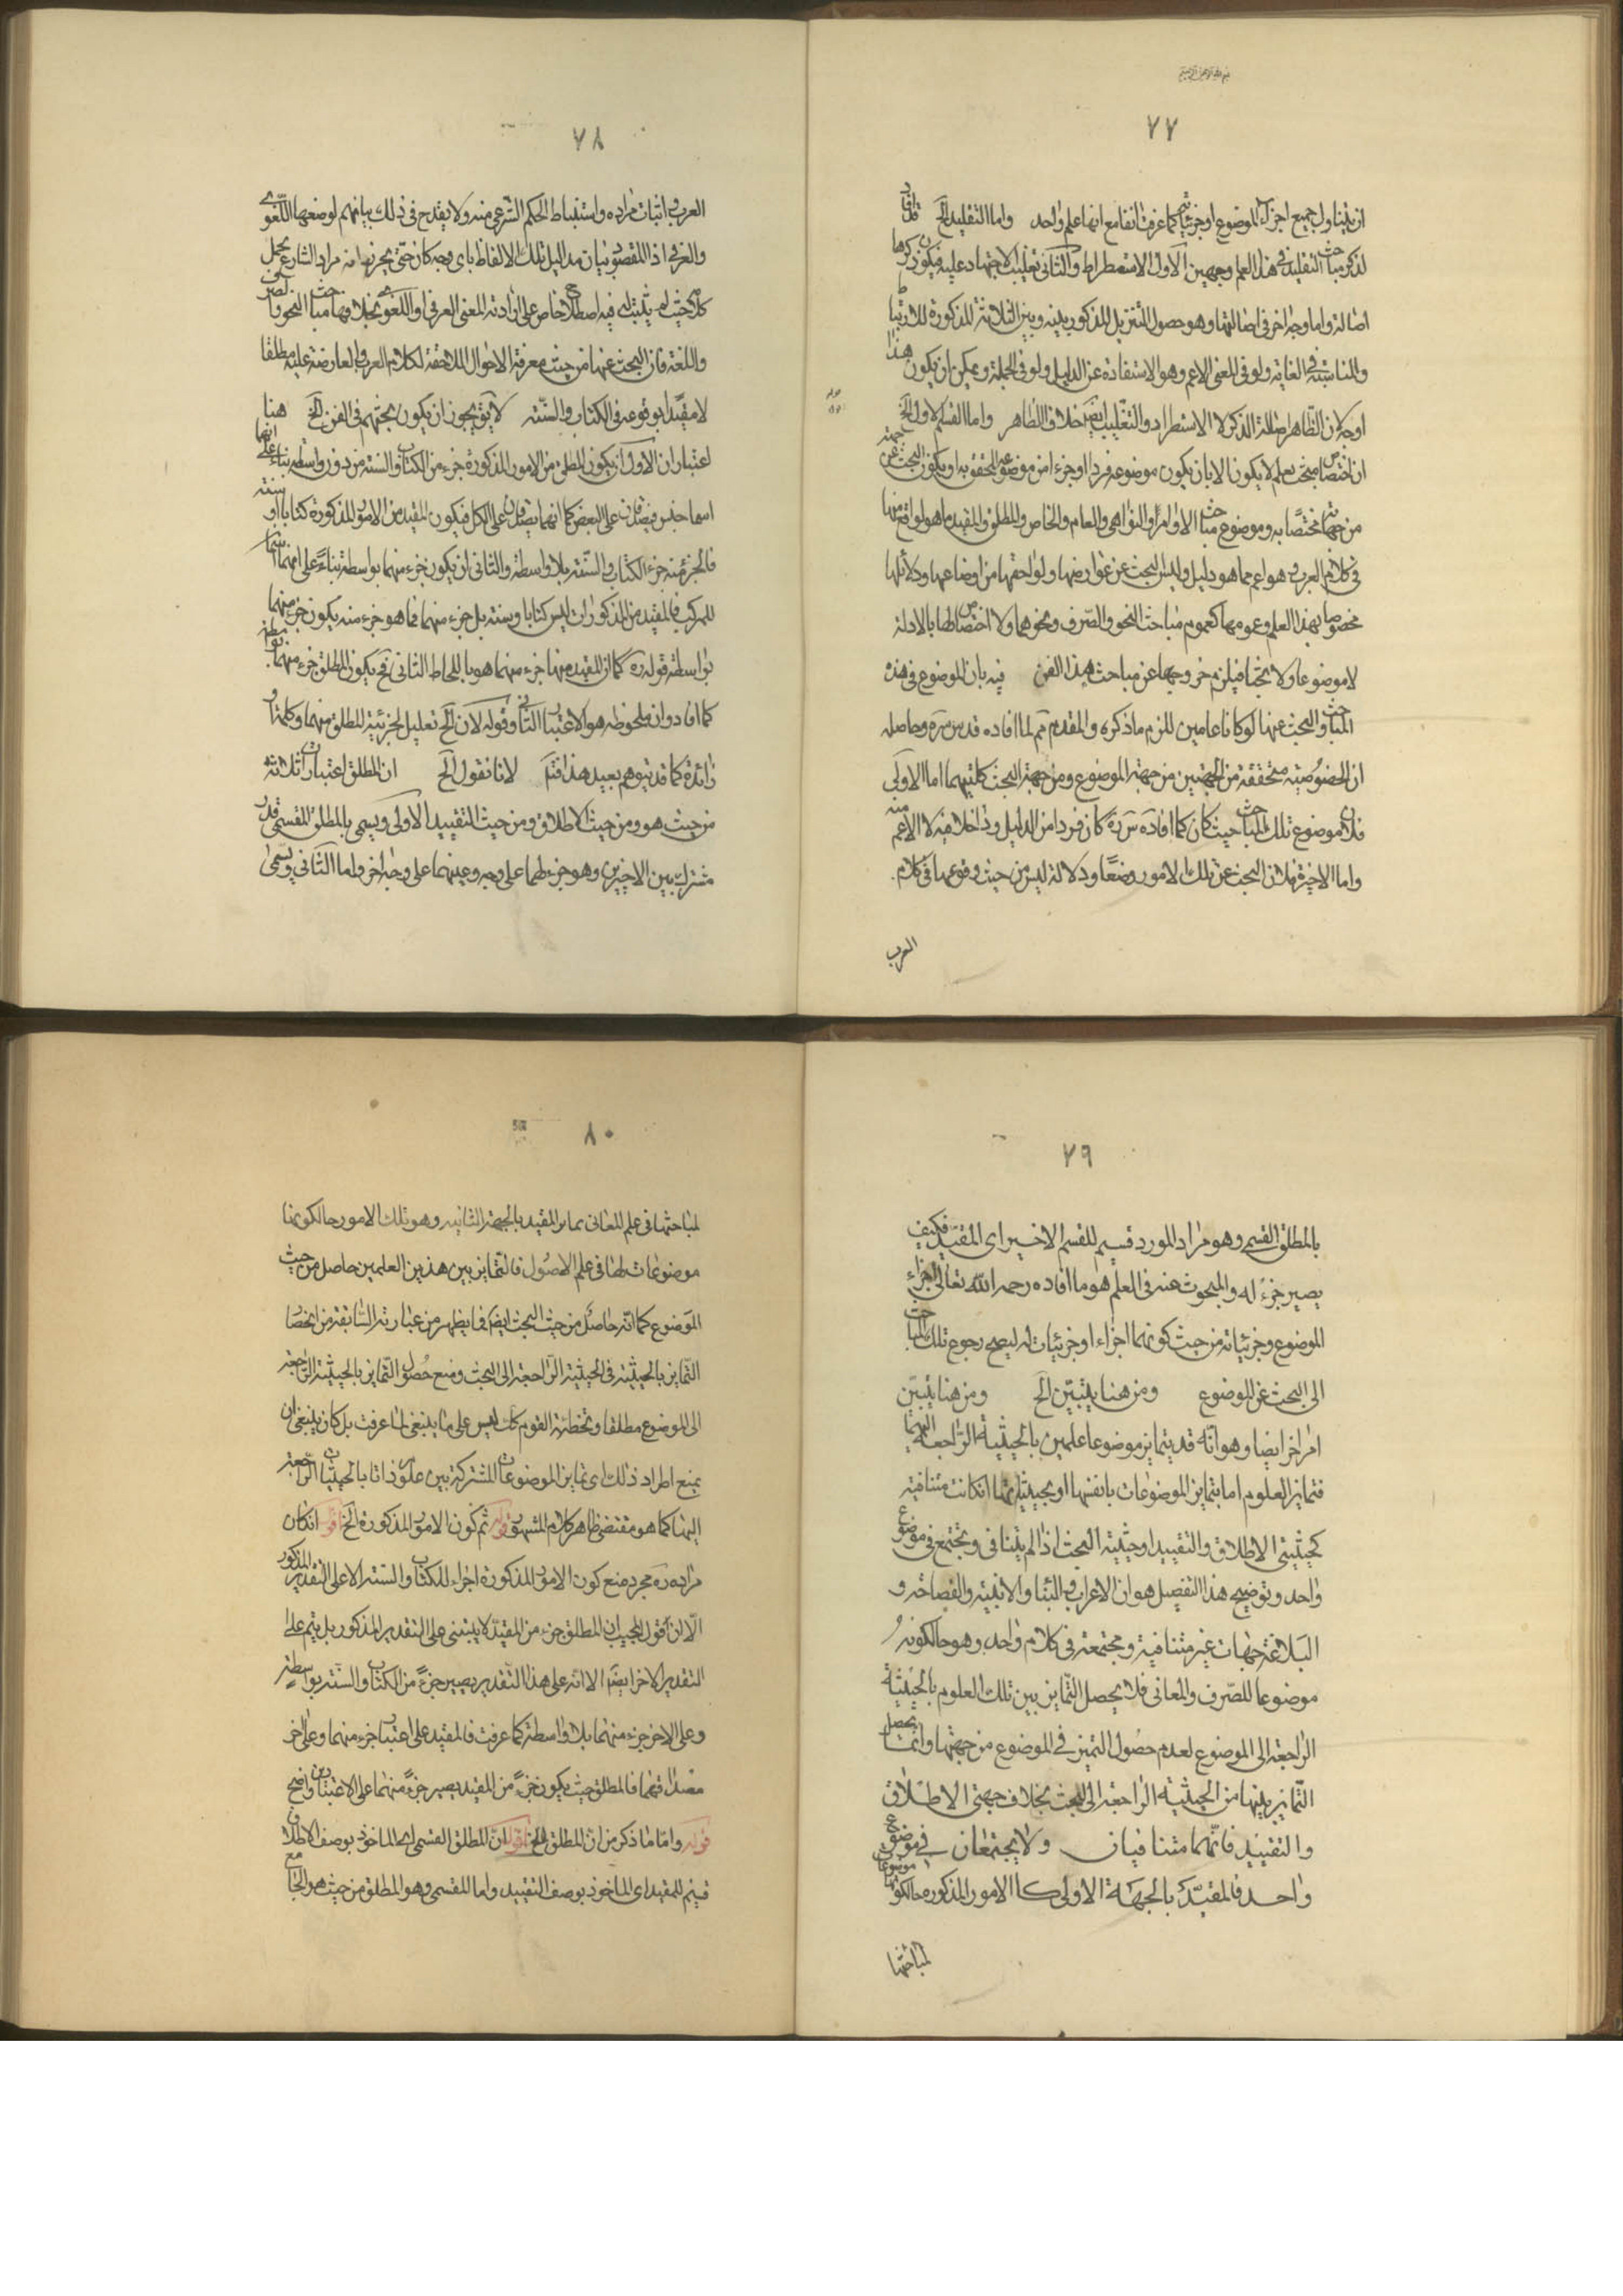 ٧٧
ان يتناول جميع اجزاء الموضوع او جزئياته كما عرفت انفا مع انها علم واحد واما التقليد الخ قد افاد
لذكر مباحث التقليد في هذا العلم وجهين الاول الاستطراط والثانى تغليب الاجتهاد عليه فيكون ذكرها
اصالة واما وجه اخر فى اصالتها وهو حصول التنزيل المذكور بينه وبين الثلاثة المذكورة للارتباط
والمناسبة فى الغاية ولو فى المعنى الاعم وهو الاستفادة عن الدليل ولو فى الجملة ويمكن ان يكون هذا
اوجه لان الظاهر اصالة الذكر لا الاستطراد والتغليب ايضا خلاف الظاهر واما القسم الاول الخ
ان اختصاص مبحث بعلم لا يكون الا بان يكون موضوعه فردا او جزء من موضوعه المحقق به او يكون البحث عن جهته
من جهتها مختصا به وموضوع مباحث الاوامر والنواهى والعام والخاص والمطلق والمقيد ما هو لواقع منها
فى كلام العرب وهو اعم مما هو دليل وليس البحث عن عوارضها ولواحقها من اوضاعها ودلائلها
مخصوصا بهذا العلم وعمومها كعموم مباحث النحو والصرف ونحوهما ولا اختصاص لها بالادلة
لا موضوعا ولا بحثا فيلزم خروجها عن مباحث هذا الفن فيه بان الموضوع فى هذه
المباحث والبحث عنها لو كانا عامين للزم ما ذكره والمقدم مم لما افاده قدس سره وحاصله
ان الخصوصية متحققة من الجهتين من جهة الموضوع ومن جهة البحث كلتيهما اما الاولى
فلان موضوع تلك المباحث حيث كان كما افاده س ره كان فردا من الدليل وداخلا فيه لا الاعم منه
واما الاخيرة فلان البحث عن تلك الامور وضعا ودلالة ليس من حيث وقوعها فى كلام
العرب
٧٨
العرب واثبات مراده واستنباط الحكم الشرعى منه ولا يقدح فى ذلك بيانهم لوضعها اللغوى
والعرفى اذ المقصود بيان مداليل تلك الالفاظ باى وجه كان حتى يحرز بها منه مراد الشارع بحمل
كلامه حيث لم يثبت له فيه اصطلاح خاص على ارادته المعنى العرفى او اللغوى بخلافها مباحث النحو والصرف
واللغة فان البحث عنها من حيث معرفة الاحوال اللاحقة لكلام العرب والعارضة عليه مطلقا
لا مقيدا بوقوعه فى الكتاب والسنة لا يق يجوز ان يكون بحثهم فى الفن الخ هنا
اعتباران الاول ان يكون المطلق من الامور المذكورة جزء من الكتاب والسنة من دون واسطة بناء على انهما
اسما جنس فيصدقان على البعض كما انهما يصدقان على الكل فيكون المقيد من الامور المذكورة كتابا او سنة
فالجزء منه جزء الكتاب والسنة بلا واسطة والثانى ان يكون جزء منهما بواسطة بناء على انهما اسمان
للمركب فالمقيد من المذكورات ليس كتابا وسنة بل جزء منهما فما هو جزء منه يكون جزء منهما
بواسطة قوله ره كما ان المقيد منها جزء منهما هو باللحاظ الثانى فح يكون المطلق جزء منهما بواسطة
كما افاد وان ملحوظه هو الاعتبار الثانى وقوله لان الخ تعليل لجزئية المطلق منهما وكلمة
زائدة كما قد يتوهم بعيد هذا فتم لانا نقول الخ ان للمطلق اعتبارات ثلاثة
من حيث هو ومن حيث الاطلاق ومن حيث التقييد الاولى ويسمى بالمطلق المقسمى قدر
مشترك بين الاخيرين وهو جزء لهما على وجه وعينهما على وجه اخر واما الثانى ويسمى
٧٩
بالمطلق القسمى وهو مراد المورد قسيم للقسم الاخير اى المقيد فكيف
يصير جزء له والمبحوث عنه فى العلم هو ما افاده رحمه الله تعالى اجزاء
الموضوع وجزئياته من حيث كونها اجزاء او جزئيات له ليصح رجوع تلك المباحث
الى البحث عن الموضوع ومن هنا يتبين الخ ومن هنا يتبين
امر اخر ايضا وهو انه قد يتمايز موضوعا علمين بالحيثية الراجعة اليهما
فتمايز العلوم اما بتمايز الموضوعات بانفسها او بحيثياتها ان كانت متنافية
كحيثيتى الاطلاق والتقييد او حيثية البحث اذا لم يتنافى ويجتمع فى موضوع
واحد وتوضيح هذا التفصيل هو ان الاعراب والبناء والابنية والفصاحة و
البلاغة جهات غير متنافية ومجتمعة فى كلام واحد وهو حالكونه
موضوعا للصرف والمعانى فلا يحصل التمايز بين تلك العلوم بالحيثية
الراجعة الى الموضوع لعدم حصول التميز فى الموضوع من جهتها وانما يحصل
التمايز بينها من الحيثية الراجعة الى البحث بخلاف جهتى الاطلاق
والتقييد فانهما متنافيان ولا يجتمعان فى موضوع
واحد فالمقيد بالجهة الاولى كالامور المذكوره حالكونها موضوعات
لمباحثها
٨٠
لمباحثها فى علم المعانى يمايز المقيد بالجهة الثانية وهو تلك الامور حالكونها
موضوعات لها فى علم الاصول فالتمايز بين هذين العلمين حاصل من حيث
الموضوع كما انه حاصل من حيث البحث ايضا فما يظهر من عبارته السابقة من انحصار
التمايز بالحيثية فى الحيثية الراجعة الى البحث ومنع حصول التمايز بالحيثية الراجعة
الى الموضوع مطلقا وتخطئة القوم كك ليس على ما ينبغى لما عرفت بل كان ينبغى ان
يمنع اطراد ذلك اى تمايز الموضوعات المشتركة بين علوم ذاتا بالحيثيات الراجعة
اليها كما هو مقتضى ظاهر كلام المشهور قوله ثم كون الامور المذكورة الخ اقول ان كان
مراده ره مجرد منع كون الامور المذكورة اجزاء للكتاب والسنة الا على التقدير المذكور
الا ان قول المجيب ان المطلق جزء من المقيد لا يبتنى على التقدير المذكور بل يتم على
التقدير الاخر ايضا الا انه على هذا التقدير يصير جزء من الكتاب والسنة بواسطة
وعلى الاخر جزء منهما بلا واسطة كما عرفت فالمقيد على اعتبار جزء منهما وعلى اخر
مصداقهما فالمطلق حيث يكون جزء من المقيد يصير جزء منهما على الاعتبارين واضح
قوله واما ما ذكر من ان المطلق الخ اقول ان المطلق القسمى اى الماخوذ بوصف الاطلاق
قسيم للمقيد اى الماخوذ بوصف التقييد واما المقسمى وهو المطلق من حيث هو الجامع مع